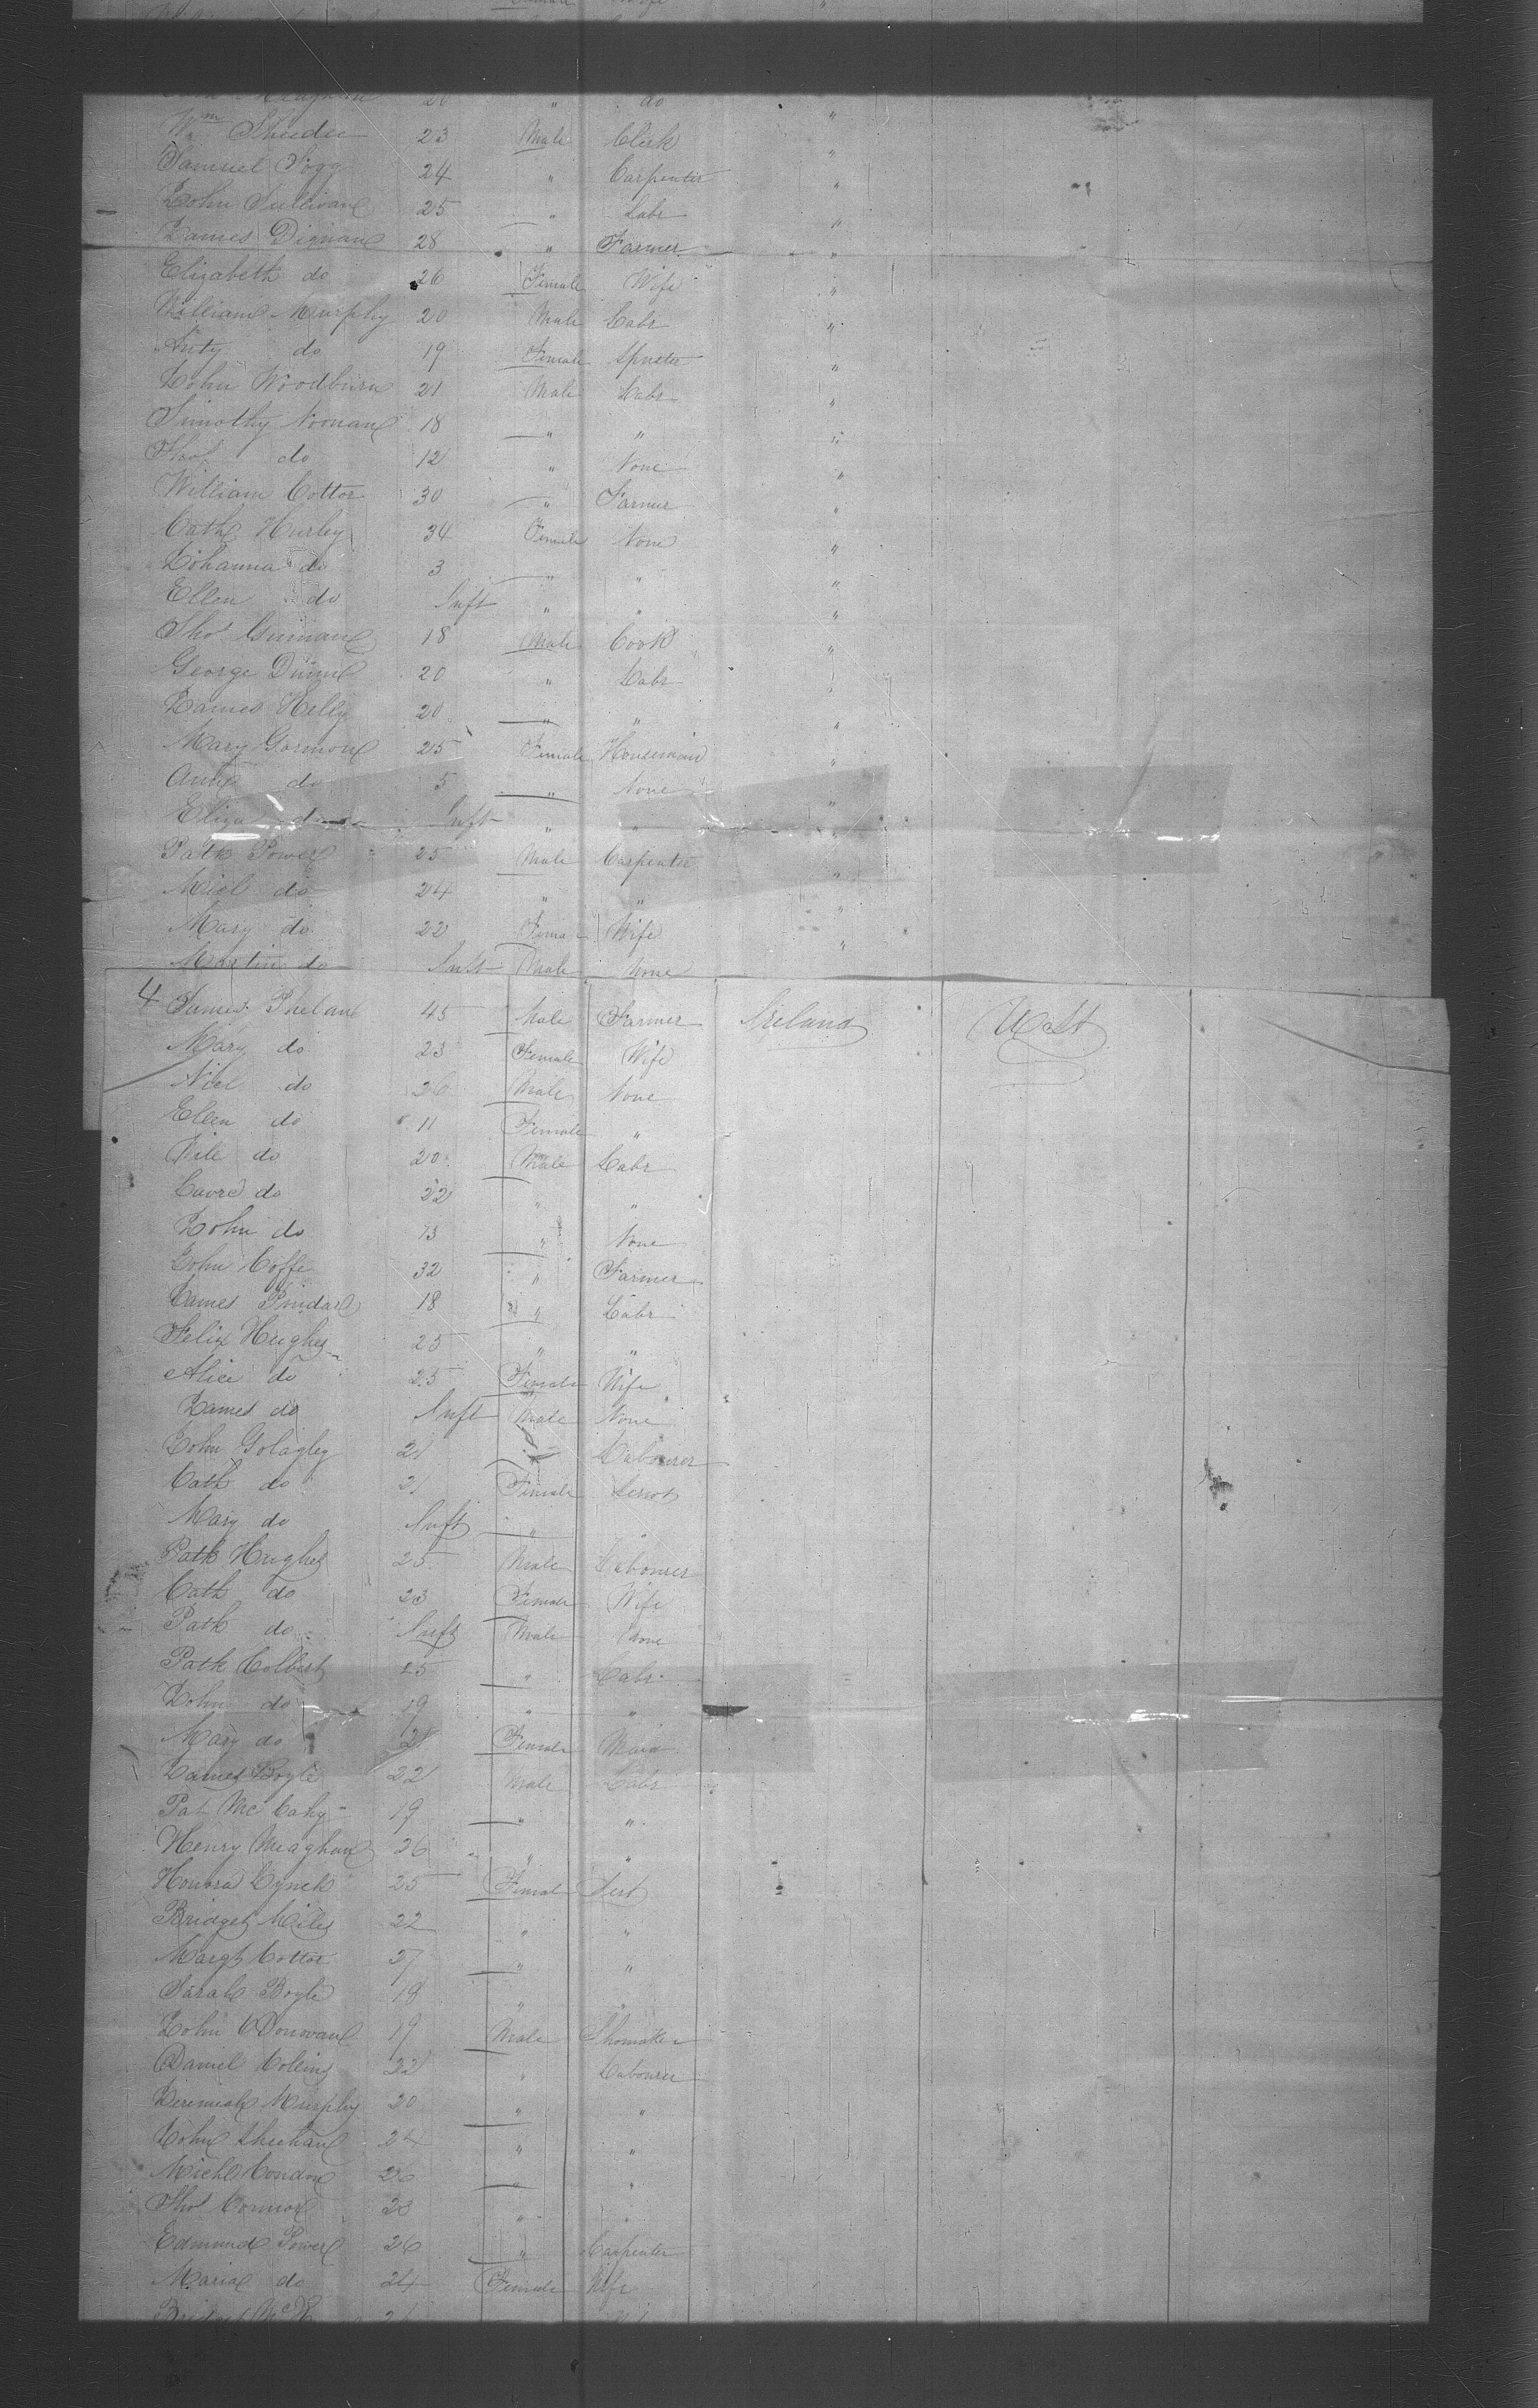 20 " do "
Wm 23 Male Clerk "
Samuel Fogg 24 " Carpenter "
John Sullivan 25 " Labr "
James Dignan 28 " Farmer "
Elizabeth do 26 Female Wife "
William Murphy 20 Male Labr "
do 19 Female Spnster "
John Woodburn 21 Male Labr "
Timothy Noonan 18 " " "
Thos do 12 " None "
William Cotter 30 " Farmer "
Cath Hurley 34 Female None "
Johanna do 3 " " "
Ellen do Inft " " "
Thos 18 Male Cook "
George Dunne 20 " Labr "
James Kelly 20 " " "
Mary Gormon 25 Female Housemaid "
Anne do 5 " None "
Eliza do Inft " " "
Patk Power 25 Male Carpenter "
Micl do 24 " " "
Mary do 22 Femal Wife "
Martin do Inft Male None
4 James Phelan 45 Male Farmer Ireland U St
Mary do 23 Female Wife
do 26 Male None
Ellen do 11 Female "
do 20 Male Labr
do 22 " "
John do 13 " None
John Coffe 32 " Farmer
James 18 " Labr
Felix Hughes 25 " "
Alice do 25 Female Wife
James do Inft Male None
John Golagley 21 " Labourer
Cath do 21 Female Servt
Mary do Inft " "
Patk Hughes 25 Male Labourer
Cath do 23 Female Wife
Patk do Inft Male None
Patk Colbert 25 " Labr
John do 19 " "
Mary do 21 Female Maid
James Boyle 22 Male Labr
Pat Mc Cahy 19 " "
Henry Meaghan 26 " "
Honora Lynch 25 Female Sert
Bridget Miles 22 " "
Margt Cotter 27 " "
Sarah Boyle 18 " "
John O Donovan 19 Male Shomaker
Daniel Colling 22 " Labourer
Jeremiah Murphy 20 " "
John Sheehan 24 " "
Michl Condon 26 " "
Thos Connor 23 " "
Edmund Power 26 " Carpenter
Maria do 24 Female Wife
Bridget